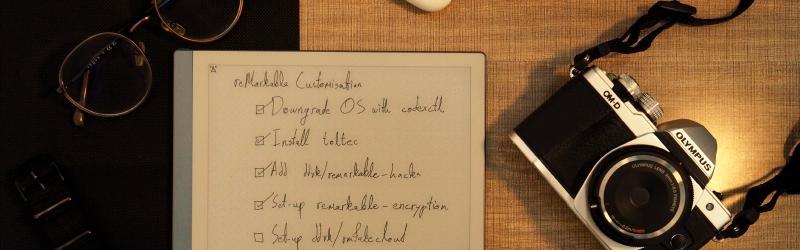 reMarkable Customisation
Downgrade OS with codexctl
Install toltec
Add ddvk/remarkable-hacks
Set-up remarkable-encryption
Set-up ddvk/rmfakecloud
OM-D
OLYMPUS
OLYMPUS LENS